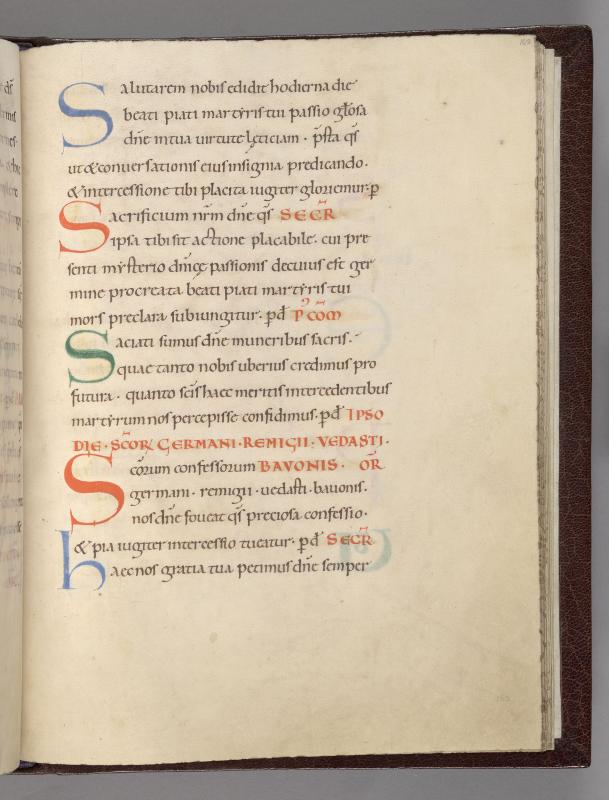 Salutarem nobis edidit hodierna die
beati piati martyris tui passio gl̄osa
dn̄e in tua uirtute lęticiam · p̄sta qs̄
ut & conuersationis eius insignia predicando·
& intercessione tibi placita iugiter gloriemur· p
Sacrificium nr̄m dn̄e qs̄ SECR̄
ipsa tibi sit actione placabile· cui pre
senti mysterio dn̄icę passionis decuius est ger
mine procreata beati piati martyris tui
mors preclara subiungitur· pd̄ P̄ COM̄
Saciati sumus dn̄e muneribus sacris·
quae tanto nobis uberius credimus pro
futura· quanto scīs haec meritis intercedentibus
martyrum nos percepisse confidimus· pd̄ IPSO
DIE · SCOR̄ GERMANI · REMIGII · VEDASTI ·
Scōrum confessorum BAVONIS · OR̄
germani · remigii · uedasti · bauonis·
nos dn̄e foueat qs̄ preciosa confessio·
& pia iugiter intercessio tueatur· pd̄ SECR̄
haec nos gratia tua petimus dn̄e semper